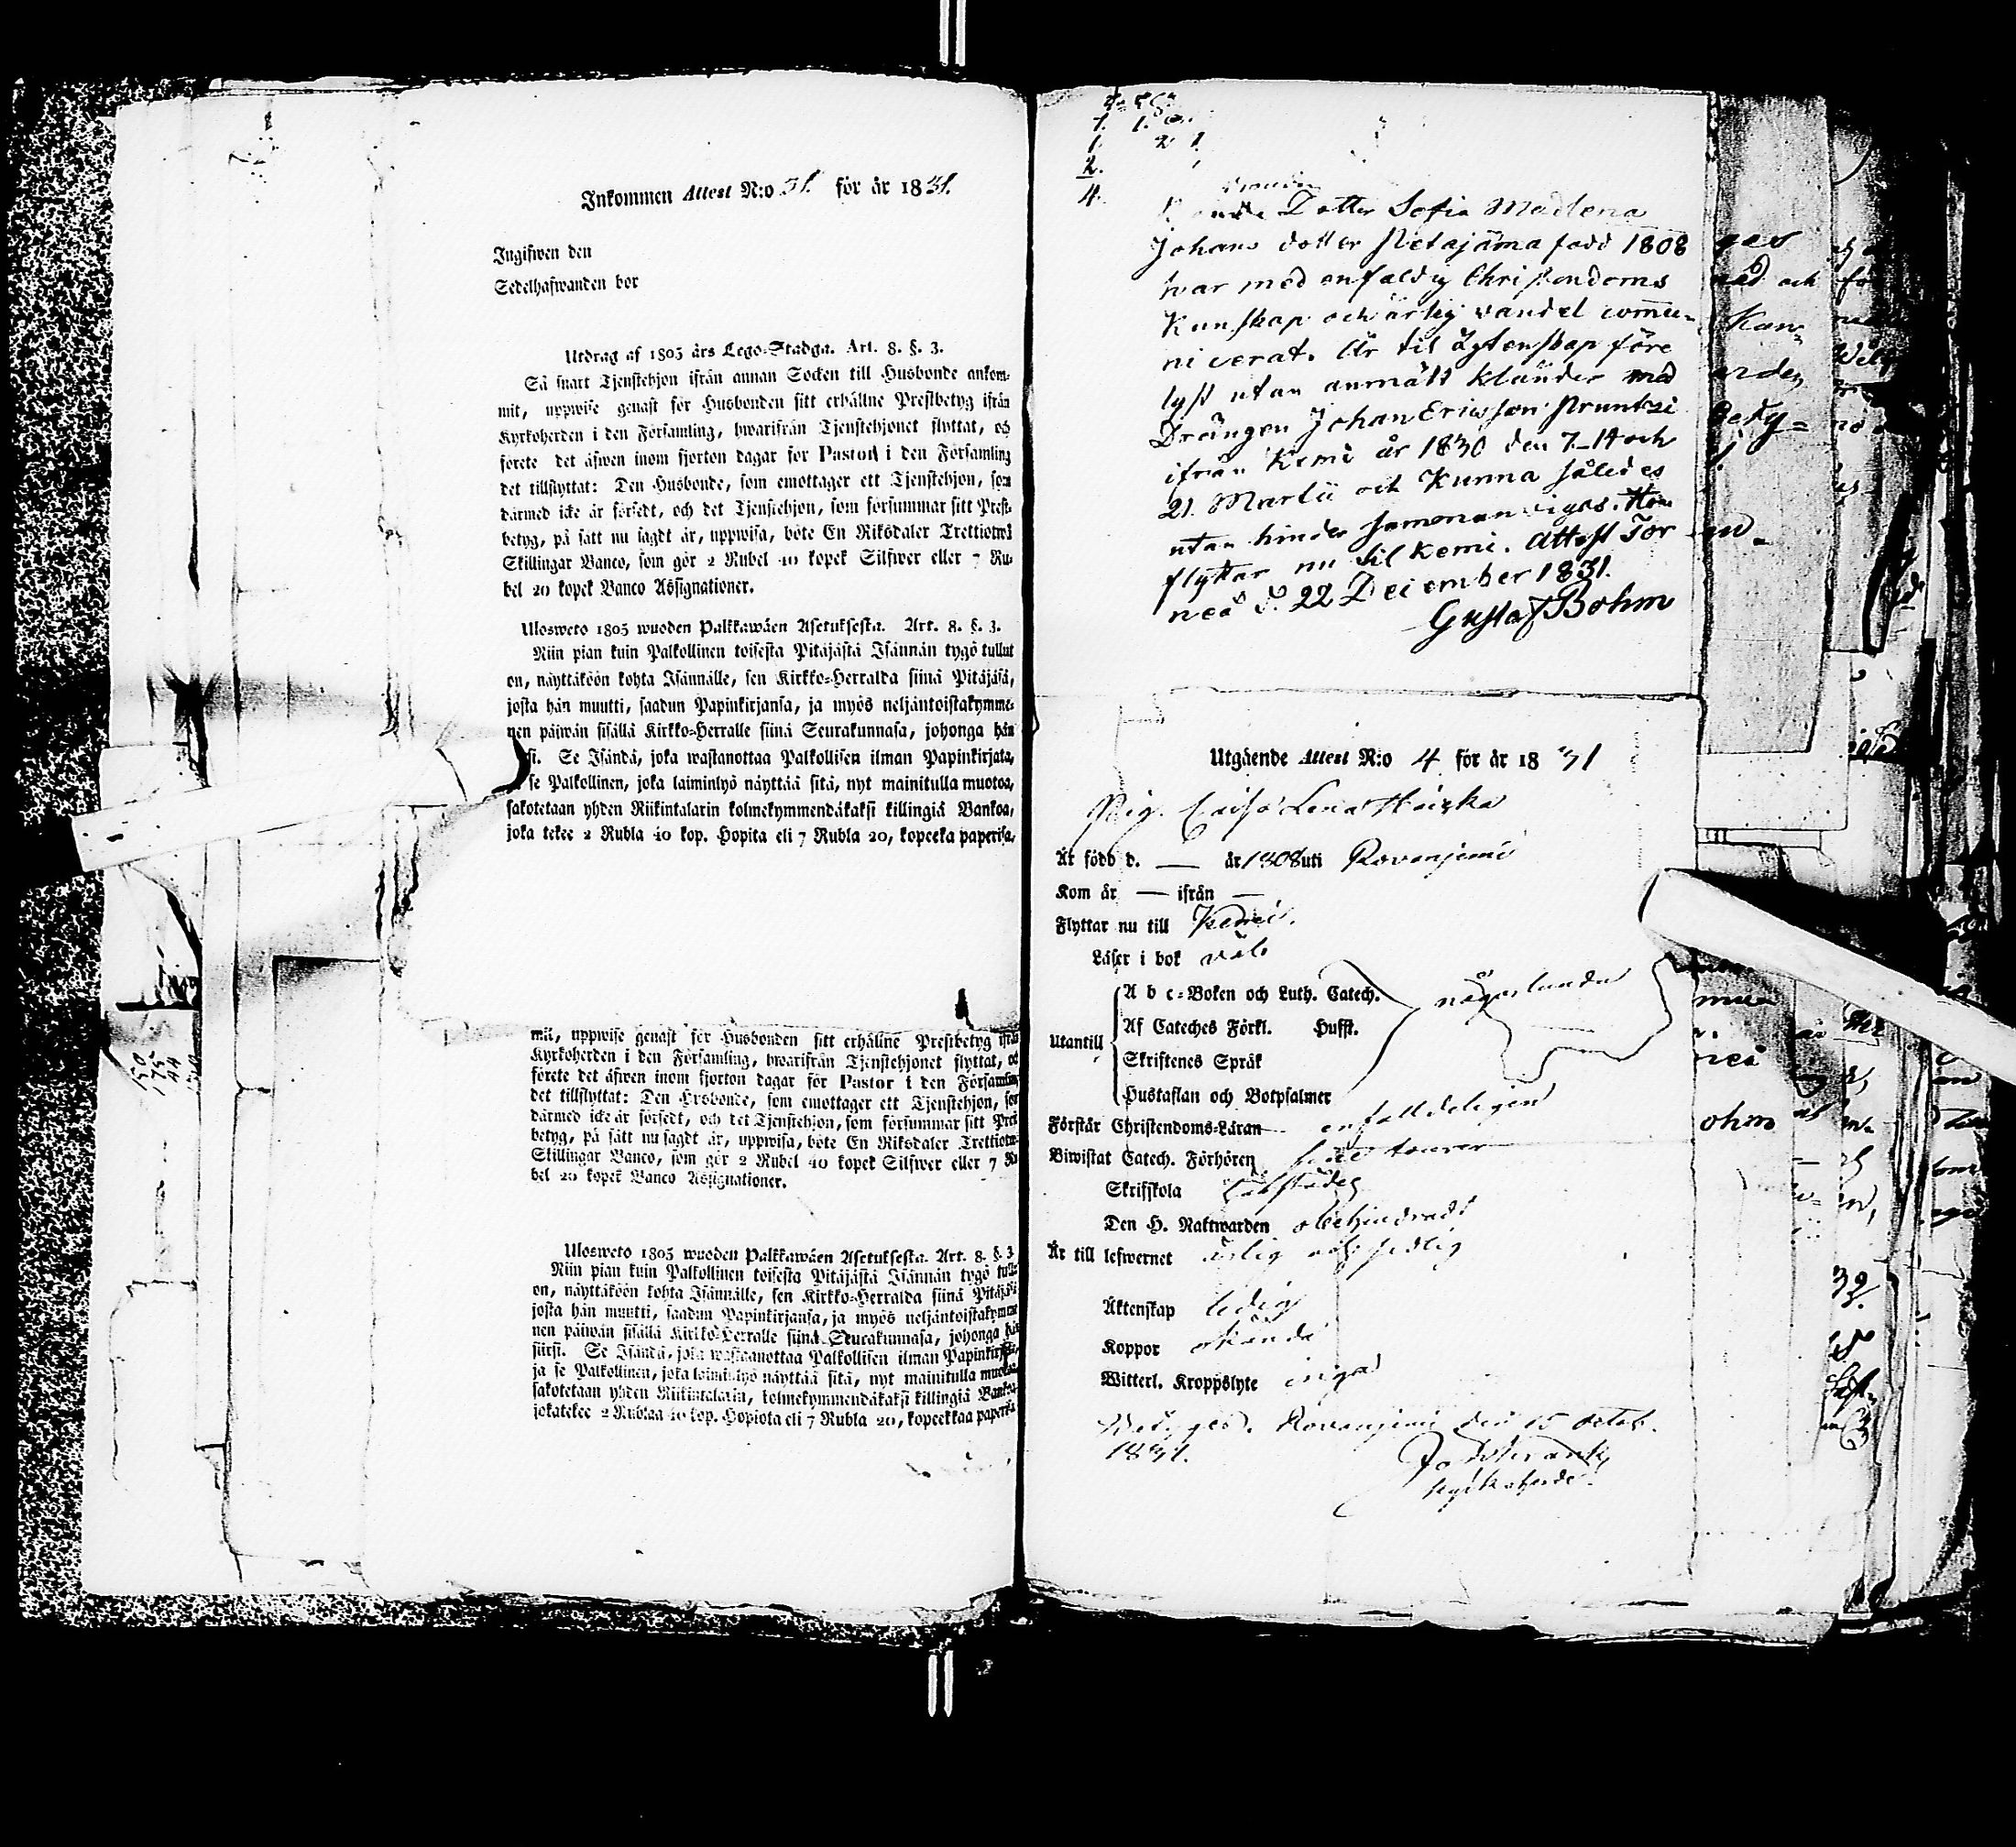 Inkommen Attest N:o 31. för år 1831.
Ingifwen den
Sedelhafwanden bor
Utdrag af 1805 års Lego-Stadga. Art. 8. §. 3.
Så snart Tjenstehjon ifrån annan Socken till Husbonde ankom-
mit, uppwise genast för Husbonden sitt erhållne Prestbetyg ifrån
Kyrkoherden i den Församling, hwarifrån Tjenstehjonet flyttat, och
förete det äfwen inom fjorton dagar för Pastor i den Församling
det tillflyttat: Den Husbonde, som emottager ett Tjenstehjon, som
därmed icke är försedt, och det Tjenstehjon, som försummar sitt Prest-
betyg, på sätt nu sagdt är, uppwisa, böte En Riksdaler Trettiotwå
Skillingar Banco, som gör 2 Rubel 40 kopek Silfwer eller 7 Ru-
bel 20 kopek Banco Assignationer.
Ulosweto 1805 wuoden Palkkawäen Asetuksesta. Art. 8. §. 3.
Niin pian kuin Palkollinen toisesta Pitäjästä Isännän tygö tullut
on, näyttäköön kohta Isännälle, sen Kirkko-Herralda siinä Pitäjäsä,
josta hän muutti, saadun Papinkirjansa, ja myös neljäntoistakymme-
nen päiwän sisällä Kirkko-Herralle siinä Seurakunnasa, johonga hän
si. Se Isändä, joka wastanottaa Palkollisen ilman Papinkirjata,
se Palkollinen, joka laiminlyö näyttää sitä, nyt mainitulla muotoa,
sakotetaan yhden Riikintalarin kolmekymmendäkaksi killingiä Bankoa,
joka tekee 2 Rubla 40 kop. Hopita eli 7 Rubla 20, kopeeka paperisa.
mit, uppwise genast för Husbonden sitt erhållne Prestbetyg ifrån
Kyrkoherden i den Församling, hwarifrån Tjenstehjonet flyttat, oc
förete det äfwen inom fjorton dagar för Pastor i den Församling
det tillflyttat: Den Husbonde, som emottager ett Tjenstehjon, som
därmed icke är försedt, och det Tjenstehjon, som försummar sitt Prest
betyg, på sätt nu sagdt är, uppwisa, böte En Riksdaler Trettiotw
Skillingar Banco, som gör 2 Rubel 40 kopek Silfwer eller 7 Ru
bel 20 kopek Banco Assignationer.
Ulosweto 1805 wuoden Palkkawäen Asetuksesta. Art. 8. §. 3
Niin pian kuin Palkollinen toisesta Pitäjästä Isännän tygö tullu
on, näyttäköön kohta Isännälle, sen Kirkko-Herralda siinä Pitäjäsä
josta hän muutti, saadun Papinkirjansa, ja myös neljäntoistakymme
nen päiwän sisällä Kirkko-Herralle siinä Seurakunnasa, johonga hän
siirsi. Se Isändä, joka wastaanottaa Palkollisen ilman Papinkirjata,
ja se Palkollinen, joka laiminlyö näyttää sitä, nyt mainitulla muotoa
sakotetaan yhden Riikintalarin, kolmekymmendäkaksi killingiä Bankoa
jokatekee 2 Rublaa 40 kop. Hopiota eli 7 Rubla 20, kopeekkaa paperisa
Dotter Sofia Madlena
Johans dotter Pietajäma född 1808
har med enfaldig Christendoms
Kunskap och ärlig vandel commu-
nicerat. Är til Äktenskap före
lyst utan anmält klander med
Drängen Johan Ericsson Pruntzi
ifrån Kemi år 1830 den 7_14 och
21 Martii och kunna således
utan hinder sammanvigas. Hon
flyttar nu til Kemi. Attest Tor
neå d. 22 December 1831.
Gustaf Bohm
Utgående Attest N:o 4 för år 1831
Pig. Caisa Lena
Är född d. — år 1808 uti Rovanjemi
Kom år — ifrån —
Flyttar nu till Kemi.
Läser i bok väl
Utantill
A b c-Boken och Luth. Catech. någorlunda
Af Cateches Förkl. Hufft.
Skriftenes Språk
Hustaflan och Botpsalmer
Förstår Christendoms-Läran enfalldeligen
Biwistat Catech. Förhören
Skrifskola
Den H. Nattwarden obehindradt
Är till lefwernet ärlig och sedlig
Äktenskap ledig
Koppor
Witterl. Kroppslyte inga
Betygas. Rovanjemi den 15 Octob.
1831.